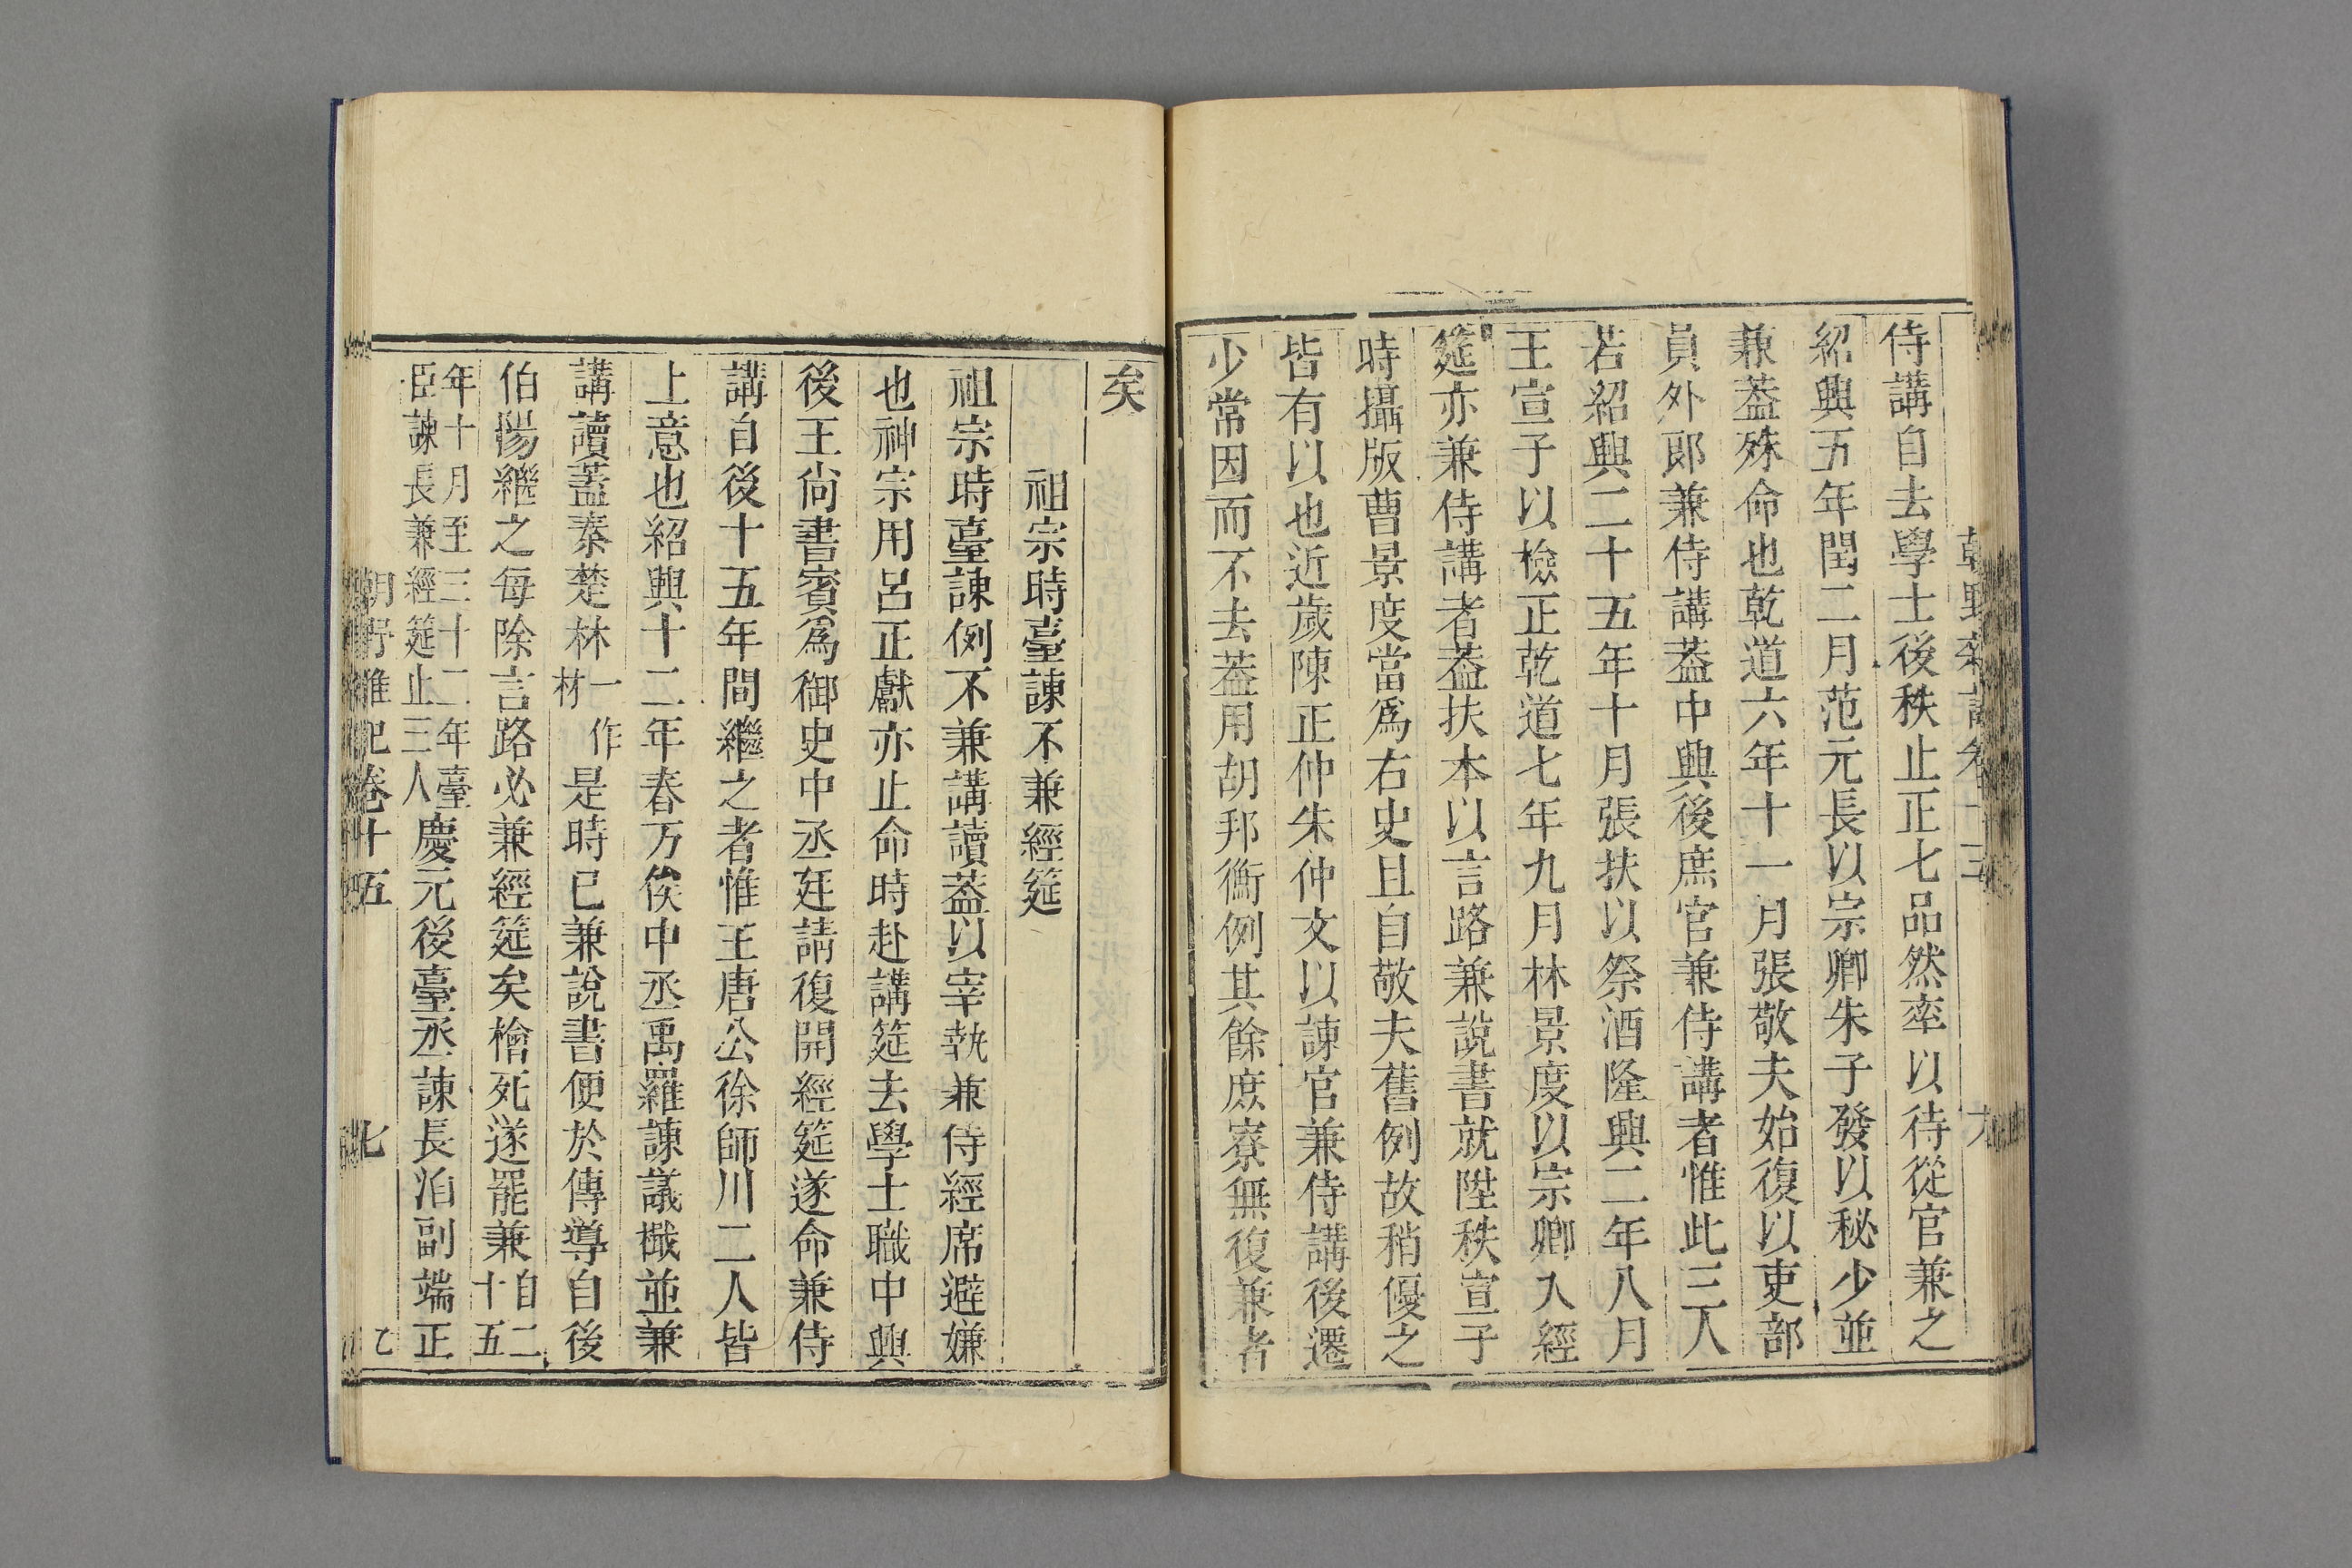 侍講自去學士後秩止正七品然率以待從官兼之
紹興五年閏二月范元長以宗卿朱子發以秘少並
兼葢殊命也乾道六年十一月張敬夫始復以吏部
員外郎兼侍講葢中興後庶官兼侍講者惟此三人
若紹興二十五年十月張扶以祭酒隆興二年八月
王宣子以檢正乾道七年九月林景度以宗卿入經
筵亦兼侍講者葢扶本以言路兼說書就陞秩宣子
時攝版曹景度當爲右史且自敬夫舊例故稍優之
皆有以也近歲陳正仲朱仲文以諫官兼侍講後遷
少常因而不去葢用胡邦衡例其餘庶寮無復兼者
矣
祖宗時臺諫不兼經筵
祖宗時臺諫例不兼講讀葢以宰執兼侍經席避嫌
也神宗用呂正獻亦止命時赴講筵去學士職中興
後王尙書賓爲御史中丞廷請復開經筵遂命兼侍
講自後十五年間繼之者惟王唐公徐師川二人皆
上意也紹興十二年春万俟中丞禹羅諫議檝並兼
講讀葢秦楚林一作材是時已兼說書便於傳導自後
伯陽繼之每除言路必兼經筵矣檜死遂罷兼自二十五
年十月至三十二年臺臣諫長兼經筵止三人慶元後臺丞諫長洎副端正
朝野雜記卷十五 七